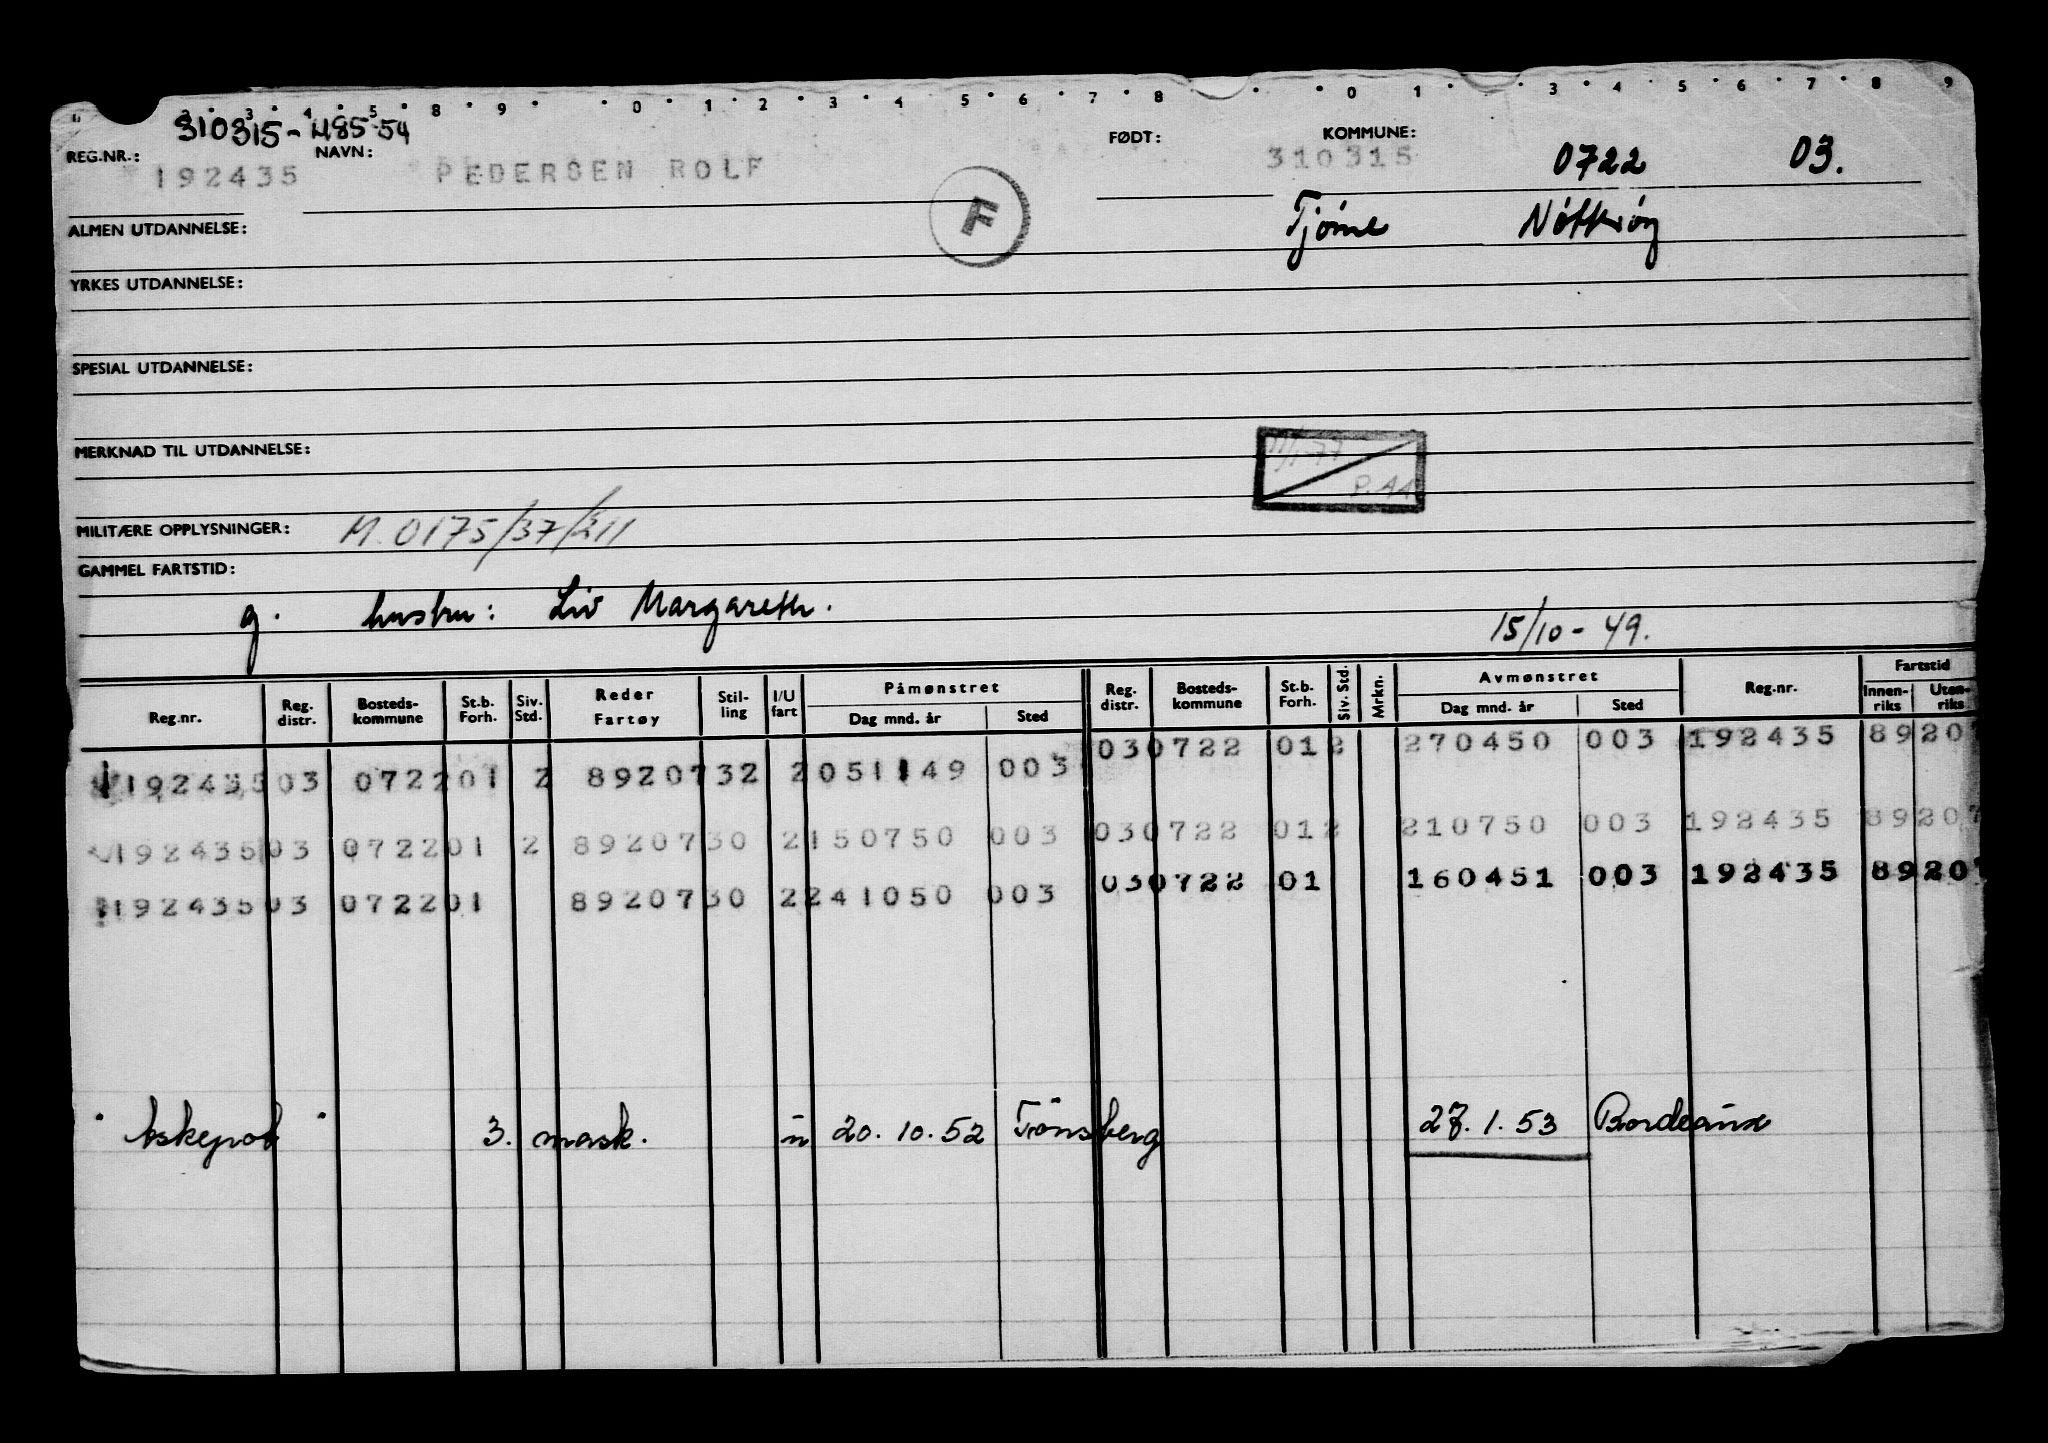 2 3 4 5 8 9 0 1 2 3 4 5 6 7 8 0 1 3 4 5 6 7 8 9
310315-48554
REG.NR.: NAVN: FØDT: KOMMUNE:
192435 PEDERSEN ROLF 310315 0722 03.
F
Tjøme Nøtterøy
ALMEN UTDANNELSE:
YRKES UTDANNELSE:
SPESIAL UTDANNELSE:
MERKNAD TIL UTDANNELSE:
11/1-77
P.AA
MILITÆRE OPPLYSNINGER: M.0175/37/211
GAMMEL FARTSTID:
g. hustru: Liv Margareth. 15/10-49.
Reg.nr. Reg. distr. Bosteds-kommune St.b. Forh. Siv. Std. Reder Fartøy Stil-ling I/U fart Påmønstret Dag mnd. år Sted Reg. distr. Bosteds-kommune St.b. Forh. Siv. Std. Mrkn. Avmønstret Dag mnd. år Sted Reg.nr. Fartstid Innen-riks Uten-riks
192435 03 0722 01 2 89207 32 2 051149 003 03 0722 01 2 270450 003 192435 89207
192435 03 0722 01 2 89207 30 2 150750 003 03 0722 01 2 210750 003 192435 89207
192435 03 0722 01 89207 30 2 241050 003 03 0722 01 160451 003 192435 89207
"Askepot" 3. mask. u 20.10.52 Tönsberg 27.1.53 Bordeaux